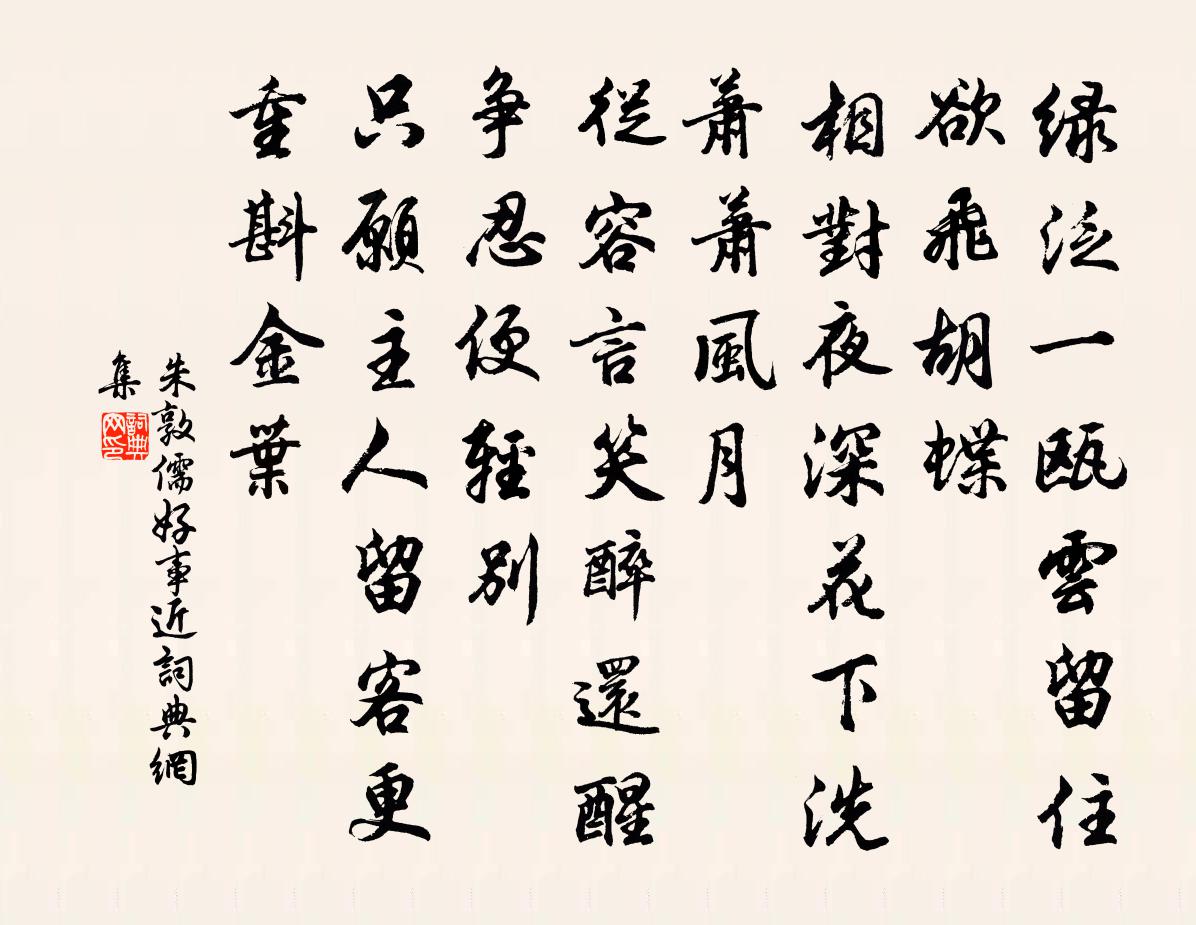 緑泛一瓯雲留住
欲飛胡蝶
相對夜深花下洗
蕭蕭風月
從容言笑醉還醒
争忍便輕别
只願主人留客更
重斟金葉
朱敦儒好事近詞典網
集
詞典
网印